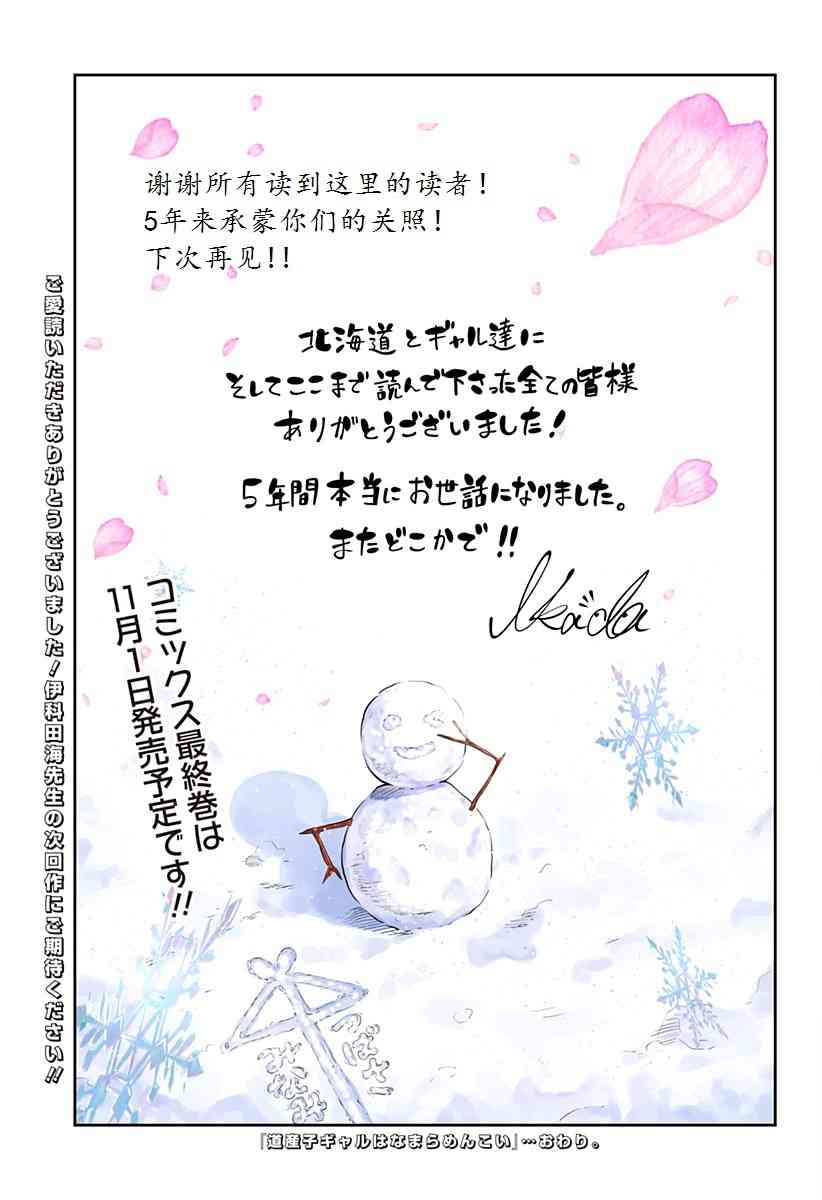 谢谢所有读到这里的读者!
5年来承蒙你们的关照!
下次再见!!
北海道とギャル達に
そしてここまで読んで下さった全ての皆様
ありがとうございました!
5年間本当にお世話になりました。
またどこかで!!
Ikada
コミックス最終巻は
11月1日発売予定です!!
ご愛読いただきありがとうございました!伊科田海先生の次回作にご期待ください!!
つばさ
みなみ
『道産子ギャルはなまらめんこい』…おわり。